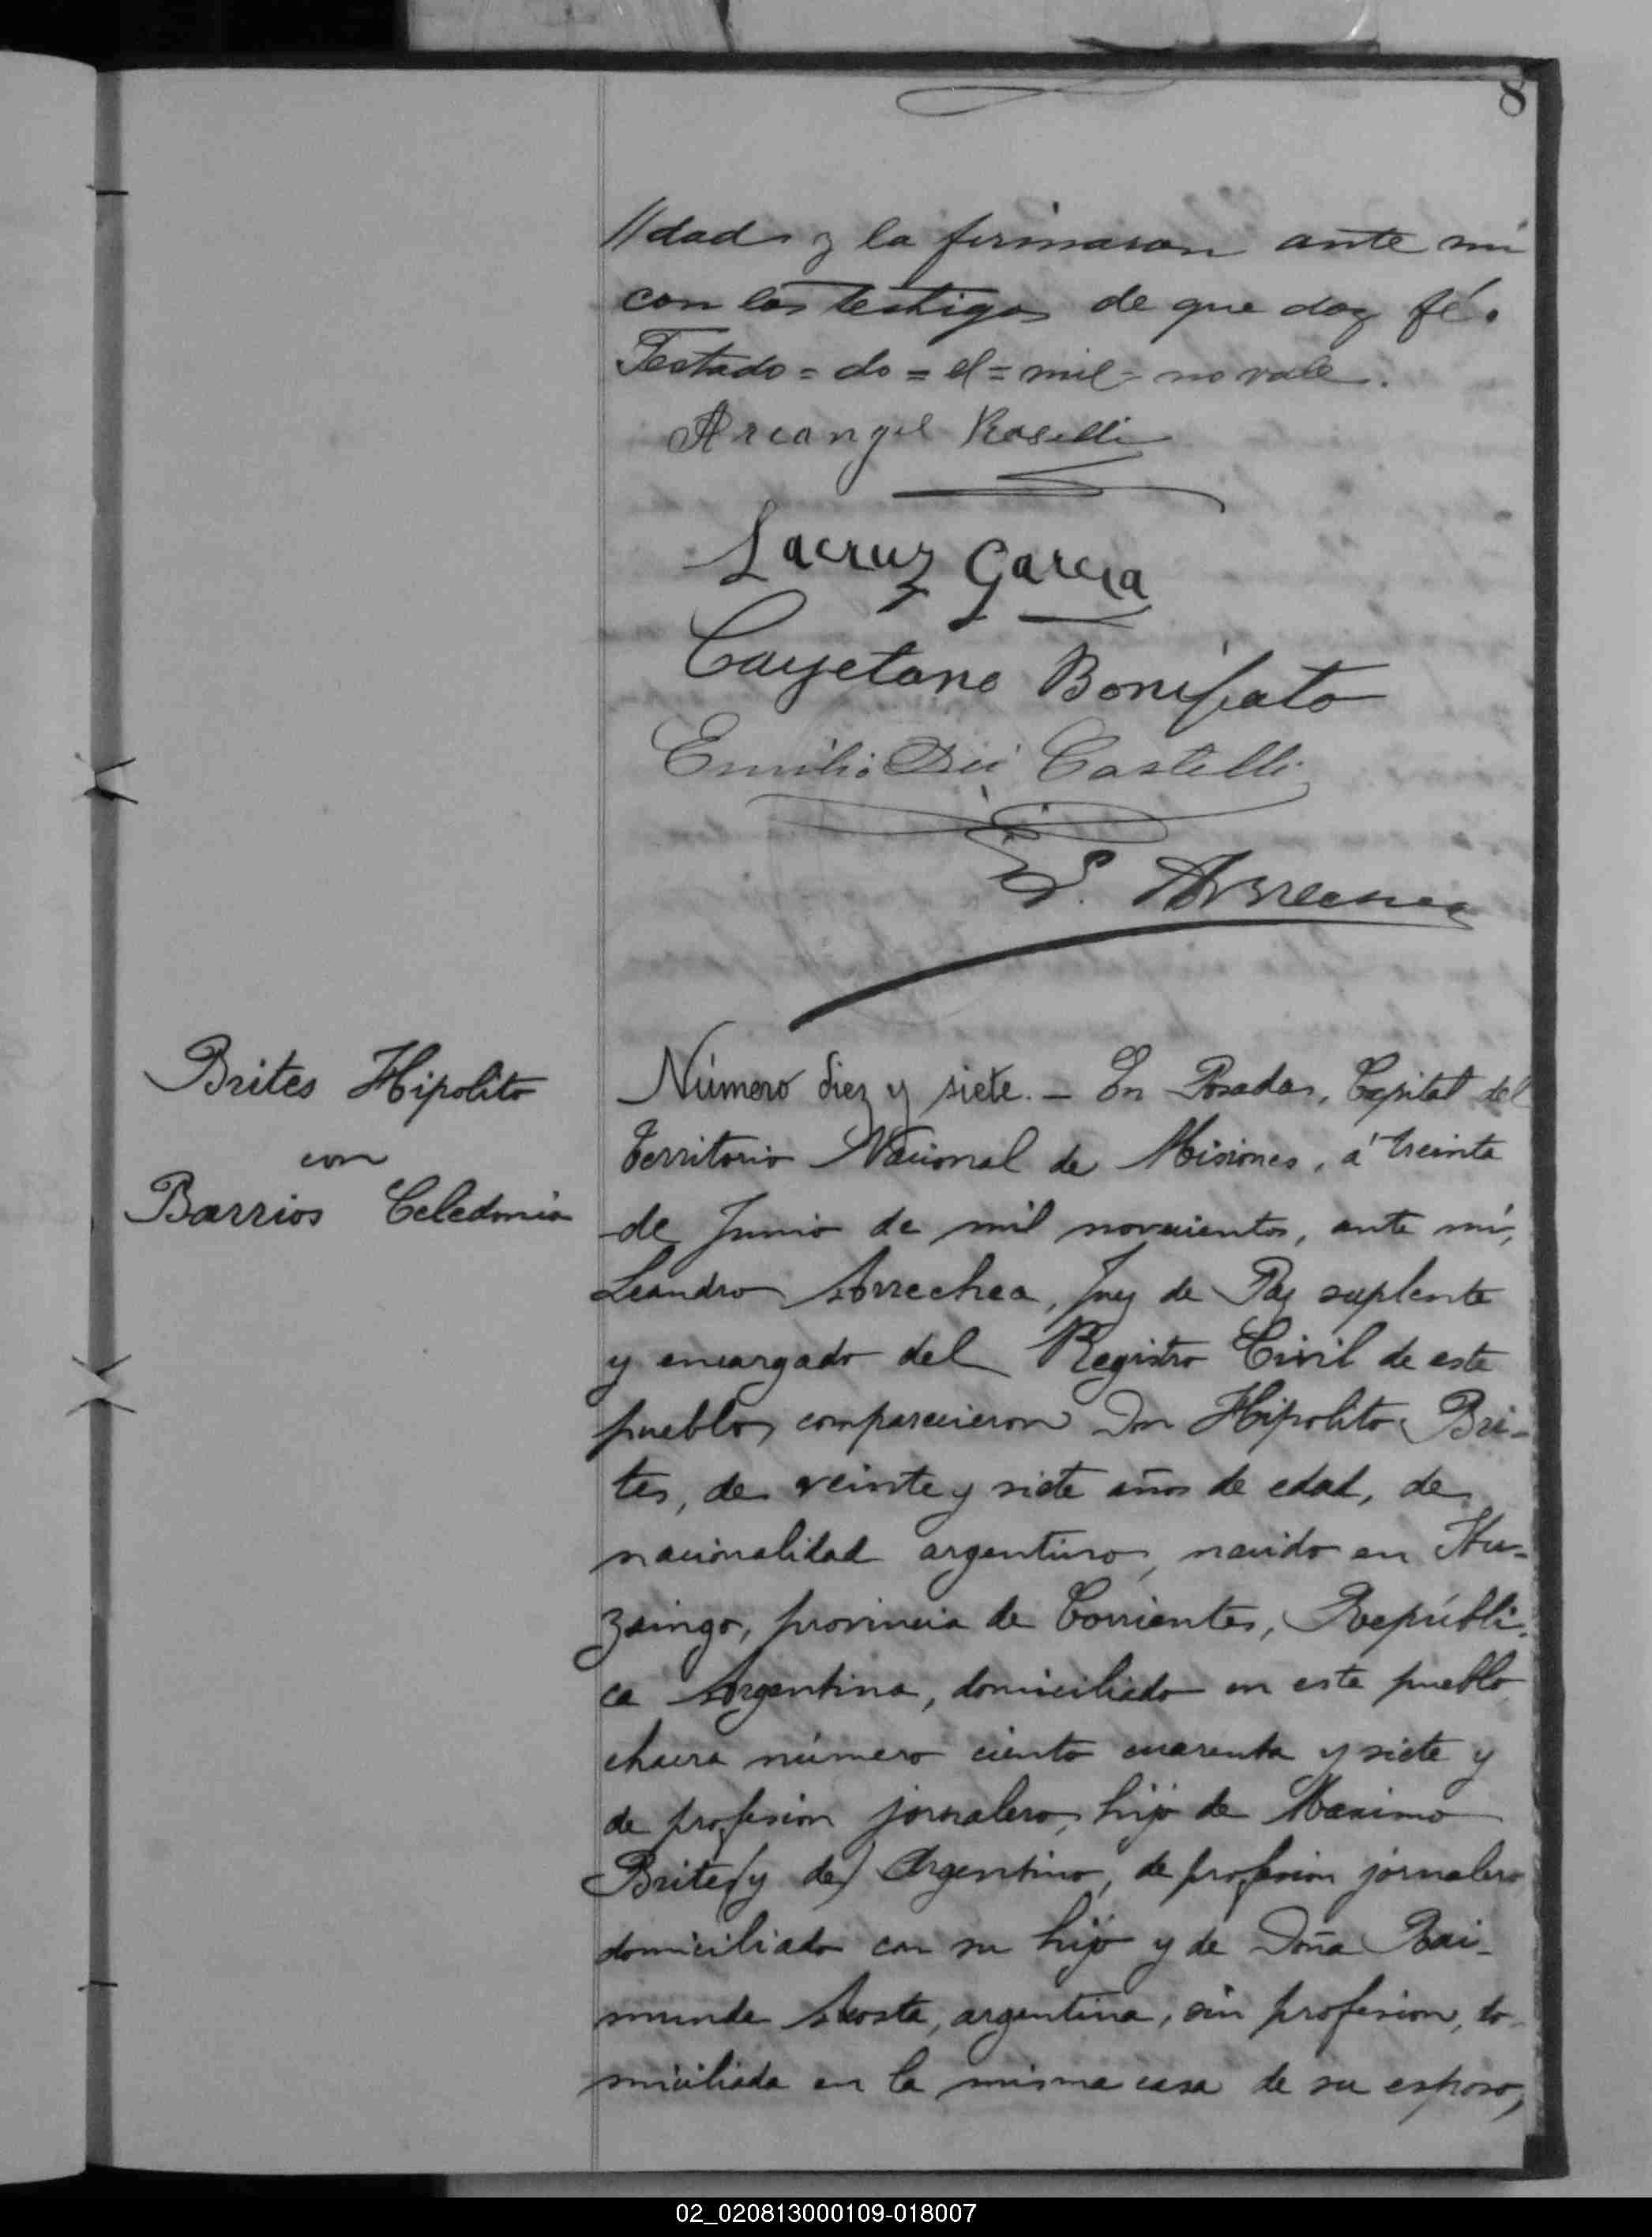 8
//dad y la firmaron ante mi
con los testigos de que doy fé.
Testado = do = el = mil = no vale.
Arcangel Roselli
Lacruz Garcia
Cayetano Bonifato
Emilio Dei Castelli
L. Arrechea
Brites Hipolito
con
Barrios Celedonia
Número diez y siete. – En Posadas, Capital del
Territorio Nacional de Misiones, á treinta
de Junio de mil novecientos, ante mí,
Leandro Arrechea, Juez de Paz suplente
y encargado del Registro Civil de este
pueblo, comparecieron Don Hipolito Bri-
tes, de veinte y siete años de edad, de
nacionalidad argentino, nacido en Itu-
zaingo, provincia de Corrientes, Repúbli-
ca Argentina, domiciliado en este pueblo
chacra número ciento cuarenta y siete y
de profesion jornalero, hijo de Maximo
Brites (y de) Argentino, de profesion jornalero
domiciliado con su hijo y de Doña Rai-
munda Acosta, argentina, sin profesion, do-
miciliada en la misma casa de su esposo,
02_020813000109-018007